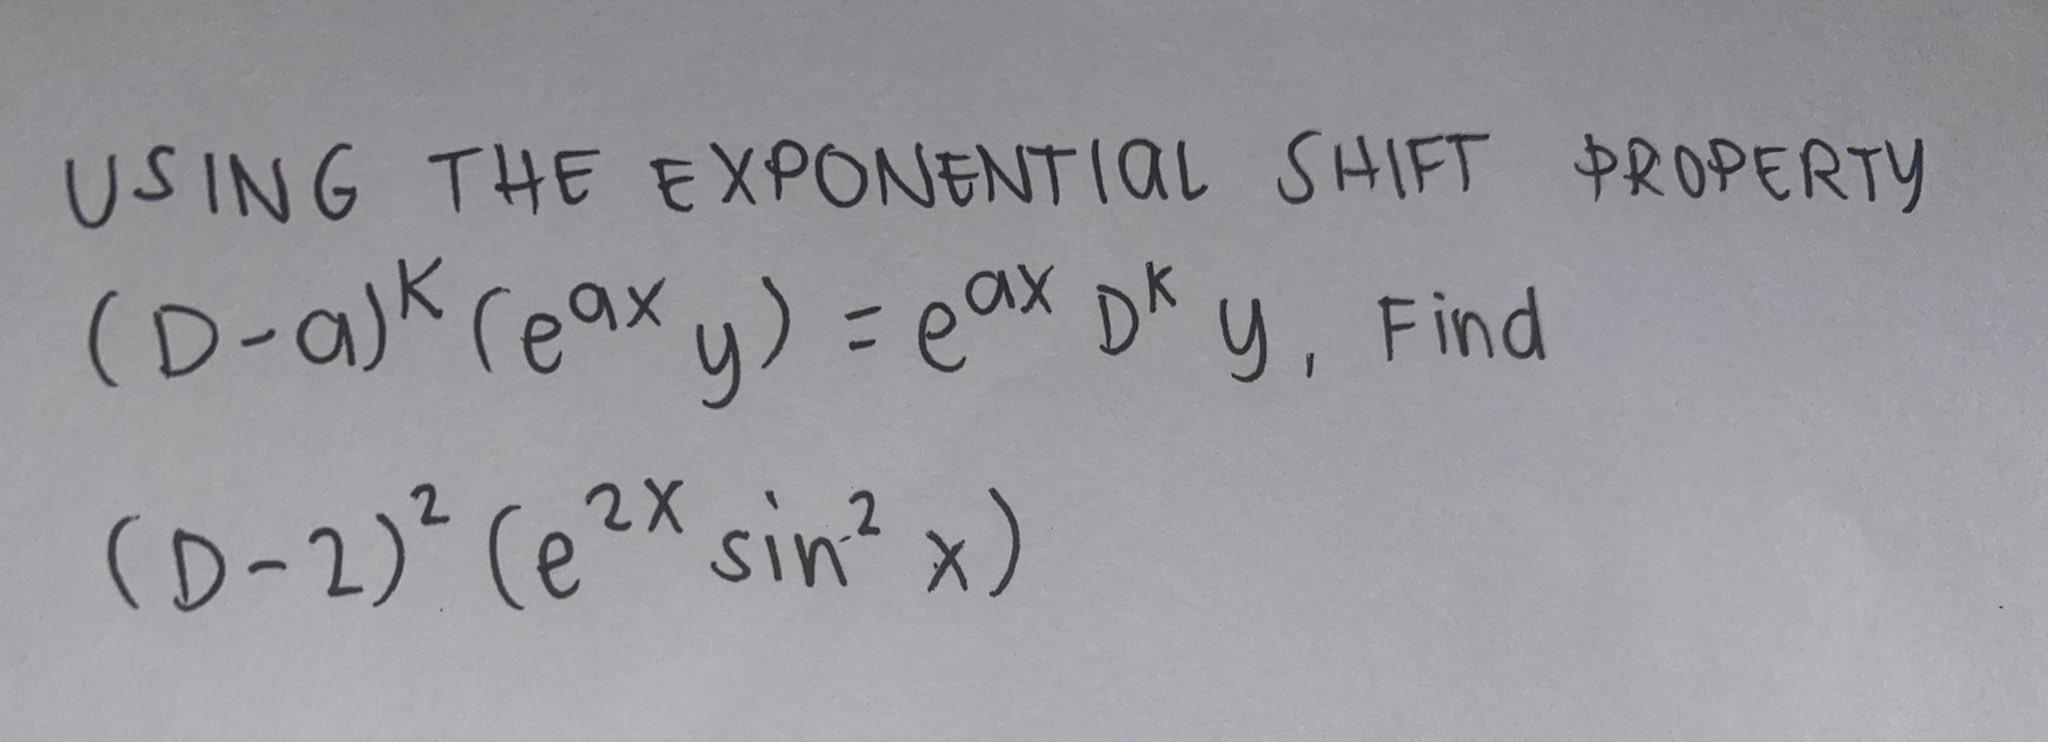 USING THE EXPONENTIAL SHIFT PROPERTY
(D-a)^K (e^ax y) = e^ax D^K y, Find
(D-2)^2 (e^2x sin^2 x)